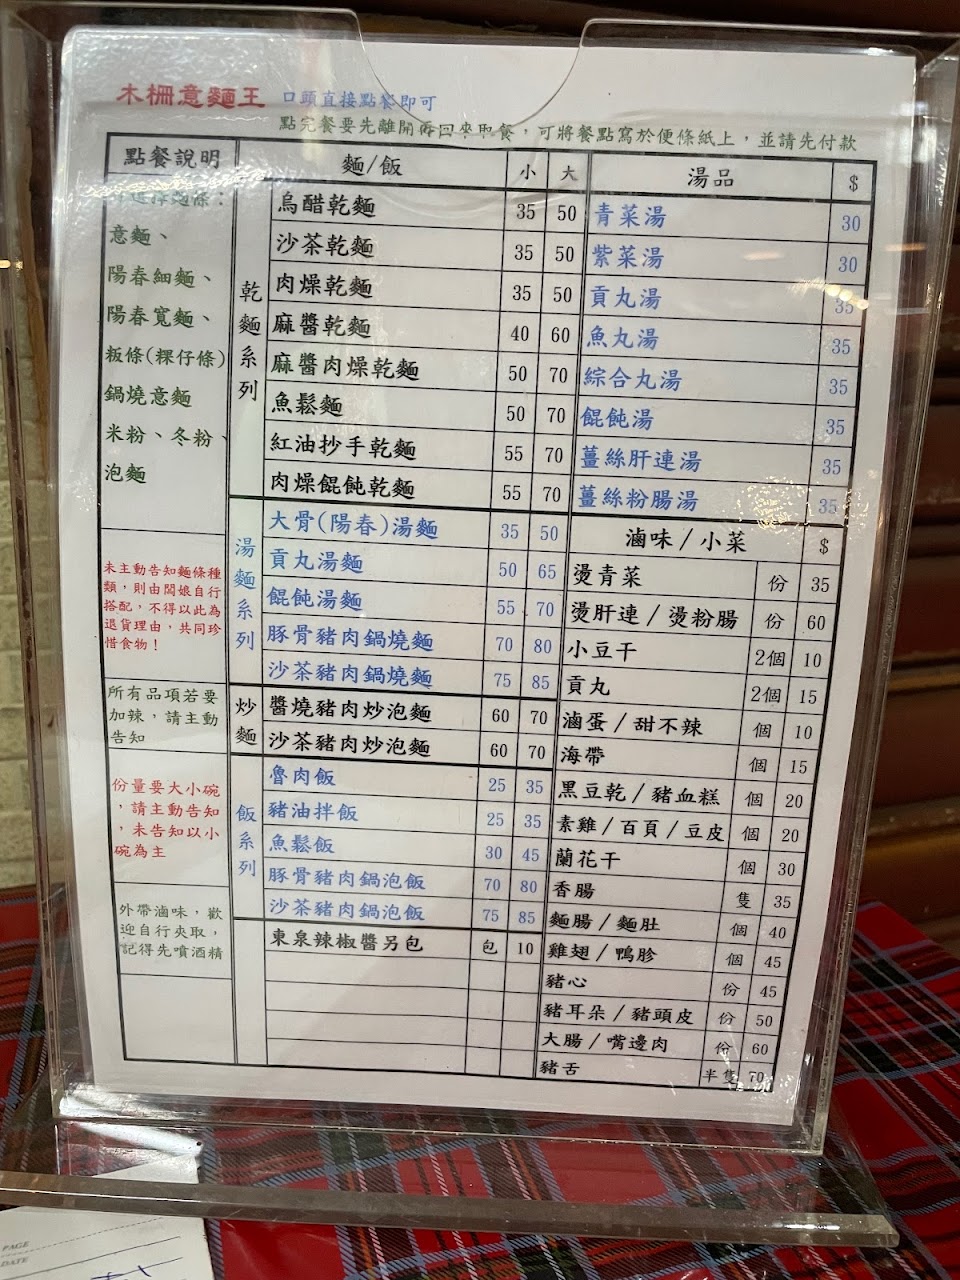 木柵意麵王 口頭直接點餐即可
點完餐要先離開再回來取餐，可將餐點寫於便條紙上，並請先付款
點餐說明
意麵、
陽春細麵、
陽春寬麵、
粄條(粿仔條)
鍋燒意麵
米粉、冬粉、
泡麵
未主動告知麵條種
類，則由闆娘自行
搭配，不得以此為
退貨理由，共同珍
惜食物！
所有品項若要
加辣，請主動
告知
份量要大小碗
，請主動告知
，未告知以小
碗為主
外帶滷味，歡
迎自行夾取，
記得先噴酒精
麵/飯 小 大
乾麵系列
烏醋乾麵 35 50
沙茶乾麵 35 50
肉燥乾麵 35 50
麻醬乾麵 40 60
麻醬肉燥乾麵 50 70
魚鬆麵 50 70
紅油抄手乾麵 55 70
肉燥餛飩乾麵 55 70
湯麵系列
大骨(陽春)湯麵 35 50
貢丸湯麵 50 65
餛飩湯麵 55 70
豚骨豬肉鍋燒麵 70 80
沙茶豬肉鍋燒麵 75 85
炒麵
醬燒豬肉炒泡麵 60 70
沙茶豬肉炒泡麵 60 70
飯系列
魯肉飯 25 35
豬油拌飯 25 35
魚鬆飯 30 45
豚骨豬肉鍋泡飯 70 80
沙茶豬肉鍋泡飯 75 85
東泉辣椒醬另包 包 10
湯品 $
青菜湯 30
紫菜湯 30
貢丸湯 35
魚丸湯 35
綜合丸湯 35
餛飩湯 35
薑絲肝連湯 35
薑絲粉腸湯 35
滷味/小菜 $
燙青菜 份 35
燙肝連/燙粉腸 份 60
小豆干 2個 10
貢丸 2個 15
滷蛋/甜不辣 個 10
海帶 個 15
黑豆乾/豬血糕 個 20
素雞/百頁/豆皮 個 20
蘭花干 個 30
香腸 隻 35
麵腸/麵肚 個 40
雞翅/鴨胗 個 45
豬心 份 45
豬耳朵/豬頭皮 份 50
大腸/嘴邊肉 份 60
豬舌 半隻 70
PAGE
DATE